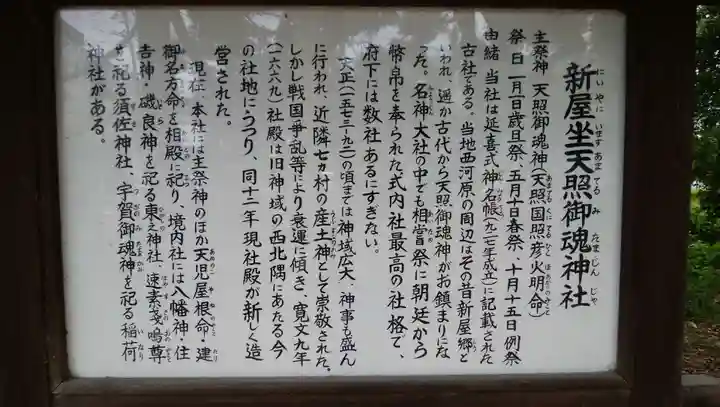 新屋坐天照御魂神社
主祭神 天照御魂神(天照国照彦火明命)
祭日 一月一日歳旦祭、五月十日春祭、十月十五日例祭
由緒 当社は延喜式神名帳(九二七年成立)に記載された
古社である。当地西河原の周辺はその昔新屋郷と
いわれ、遥か古代から天照御魂神がお鎮まりにな
った。名神大社の中でも相嘗祭に朝廷から
幣帛を奉られた式内社最高の社格で、
府下には数社あるにすぎない。
天正(一五七三-九二)の頃までは神域広大、神事も盛ん
に行われ、近隣七ヵ村の産土神として崇敬された。
しかし戦国争乱等により衰運に傾き、寛文九年
(一六六九)社殿は旧神域の西北隅にあたる今
の社地にうつり、同十二年現社殿が新しく造
営された。
現在、本社には主祭神のほか天児屋根命・建
御名方命を相殿に祀り、境内社には八幡神・住
吉神・磯良神を祀る東之神社、速素戔嗚尊
を祀る須佐神社、宇賀御魂神を祀る稲荷
神社がある。